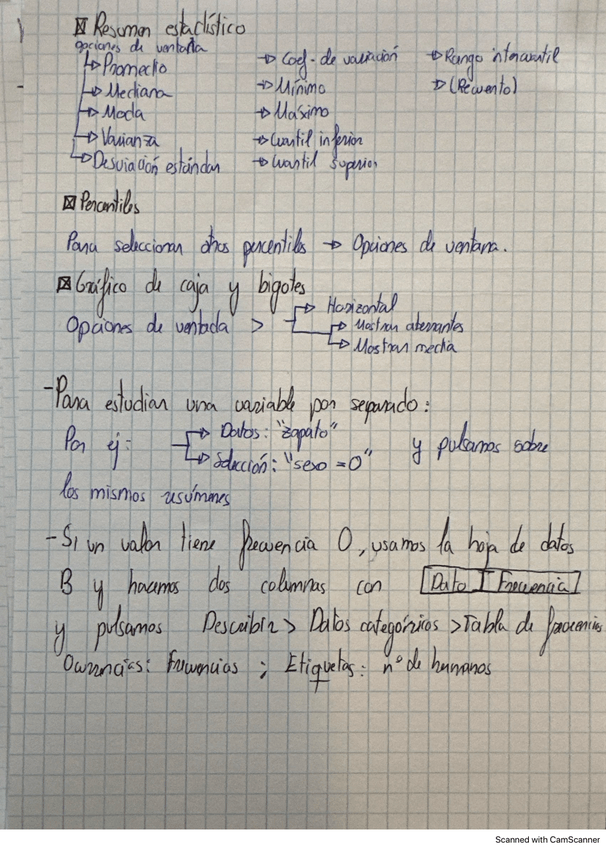 ☒ Resumen estadístico
opciones de ventana
→ Promedio → Coef. de variación → Rango intercuartil
→ Mediana → Mínimo → (Recuento)
→ Moda → Máximo
→ Varianza → Cuartil inferior
→ Desviación estándar → Cuartil superior
☒ Percentiles
Para seleccionar otros percentiles → Opciones de ventana.
☒ Gráfico de caja y bigotes
Opciones de ventada > → Horizontal
→ Mostrar aberrantes
→ Mostrar media
- Para estudiar una variable por separado:
Por ej: → Datos: "zapato"
→ Selección: "sexo = 0" y pulsamos sobre
los mismos resúmenes
- Si un valor tiene frecuencia 0, usamos la hoja de datos
B y hacemos dos columnas con Dato | Frecuencia
y pulsamos Describir > Datos categóricos > Tabla de frecuencias
Ocurrencias: Frecuencias ; Etiquetas: nº de hermanos
Scanned with CamScanner